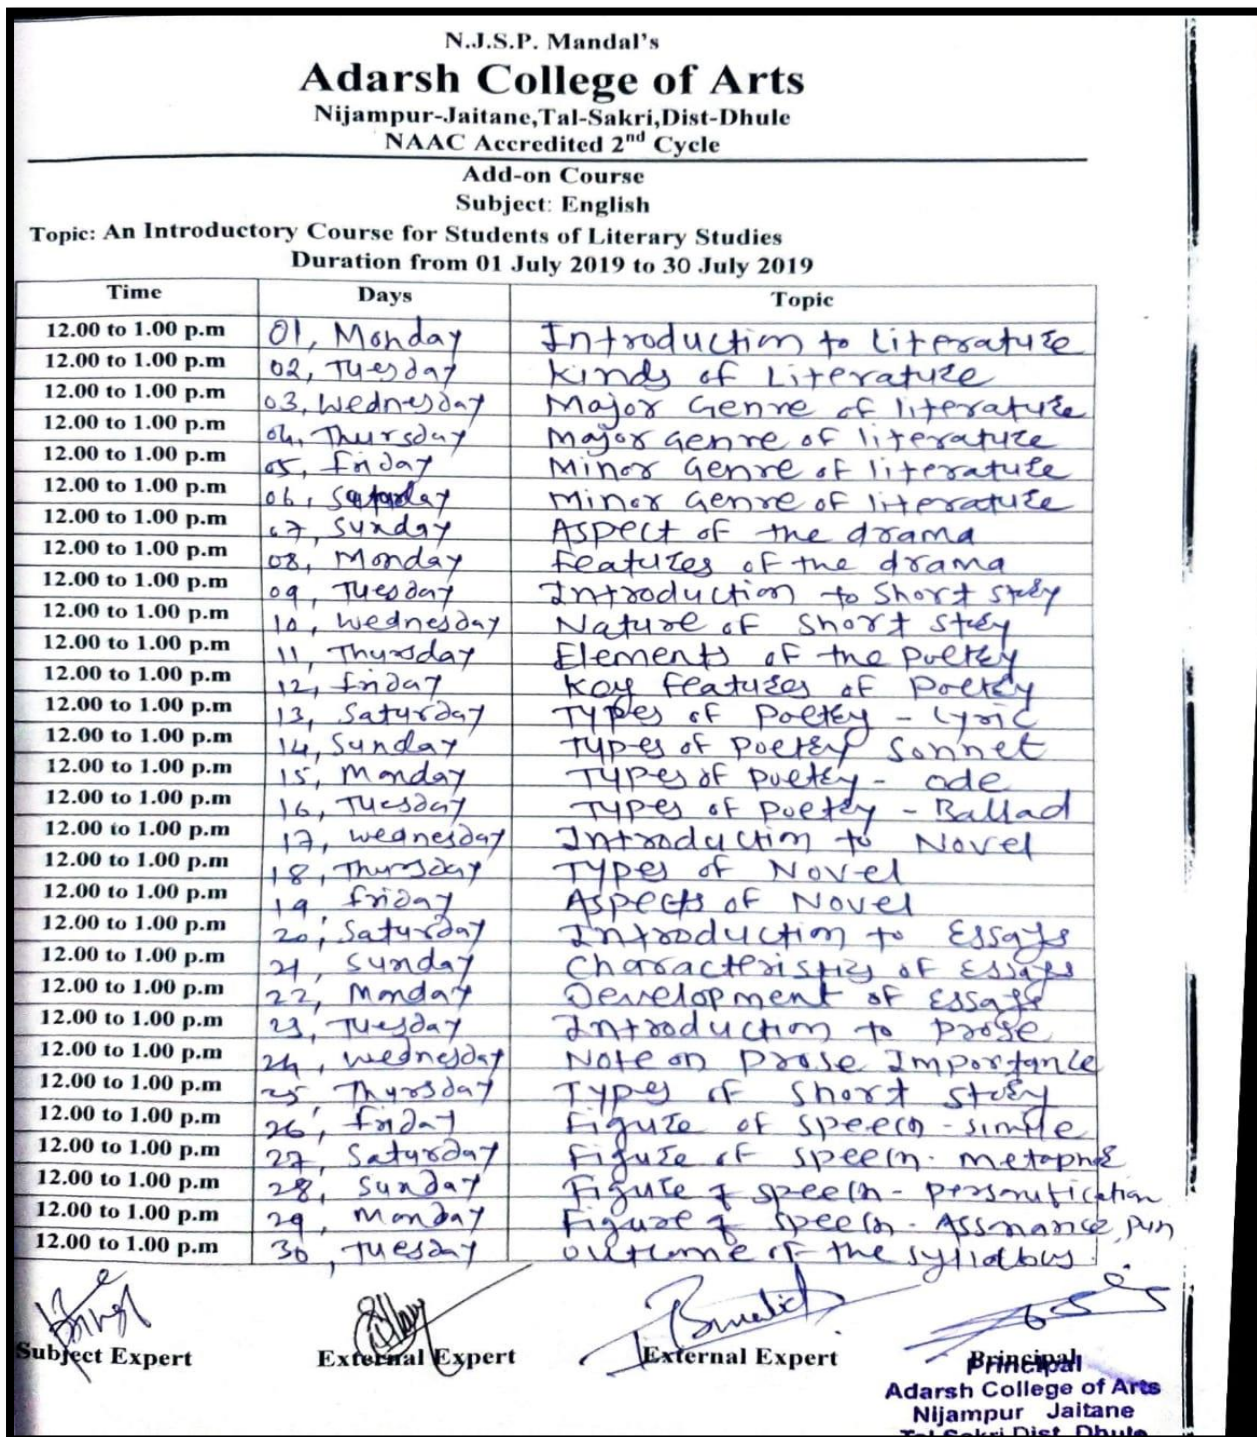 N.J.S.P. Mandal's
Adarsh College of Arts
Nijampur-Jaitane,Tal-Sakri,Dist-Dhule
NAAC Accredited 2nd Cycle
Add-on Course
Subject: English
Topic: An Introductory Course for Students of Literary Studies
Duration from 01 July 2019 to 30 July 2019
Time Days Topic
12.00 to 1.00 p.m 01, Monday Introduction to Literature
12.00 to 1.00 p.m 02, Tuesday Kinds of Literature
12.00 to 1.00 p.m 03, Wednesday Major Genre of literature
12.00 to 1.00 p.m 04, Thursday Major Genre of literature
12.00 to 1.00 p.m 05, friday Minor Genre of literature
12.00 to 1.00 p.m 06, Saturday Minor Genre of literature
12.00 to 1.00 p.m 07, Sunday Aspect of the drama
12.00 to 1.00 p.m 08, Monday features of the drama
12.00 to 1.00 p.m 09, Tuesday Introduction to Short story
12.00 to 1.00 p.m 10, Wednesday Nature of Short story
12.00 to 1.00 p.m 11, Thursday Elements of the poetry
12.00 to 1.00 p.m 12, friday Key features of Poetry
12.00 to 1.00 p.m 13, Saturday Types of Poetry - Lyric
12.00 to 1.00 p.m 14, Sunday Types of Poetry Sonnet
12.00 to 1.00 p.m 15, Monday Types of Poetry - ode
12.00 to 1.00 p.m 16, Tuesday Types of Poetry - Ballad
12.00 to 1.00 p.m 17, Wednesday Introduction to Novel
12.00 to 1.00 p.m 18, Thursday Types of Novel
12.00 to 1.00 p.m 19, friday Aspects of Novel
12.00 to 1.00 p.m 20, Saturday Introduction to Essays
12.00 to 1.00 p.m 21, Sunday Characteristics of Essays
12.00 to 1.00 p.m 22, Monday Development of Essays
12.00 to 1.00 p.m 23, Tuesday Introduction to prose
12.00 to 1.00 p.m 24, Wednesday Note on prose Importance
12.00 to 1.00 p.m 25, Thursday Types of Short story
12.00 to 1.00 p.m 26, friday Figure of speech - simile
12.00 to 1.00 p.m 27, Saturday Figure of speech -
12.00 to 1.00 p.m 28, Sunday Figure of speech - personification
12.00 to 1.00 p.m 29, Monday Figure of speech - pun
12.00 to 1.00 p.m 30, Tuesday outcome of the syllabus.
Subject Expert External Expert External Expert Principal
Principal
Adarsh College of Arts
Nijampur Jaitane
Tal Sakri Dist. Dhule